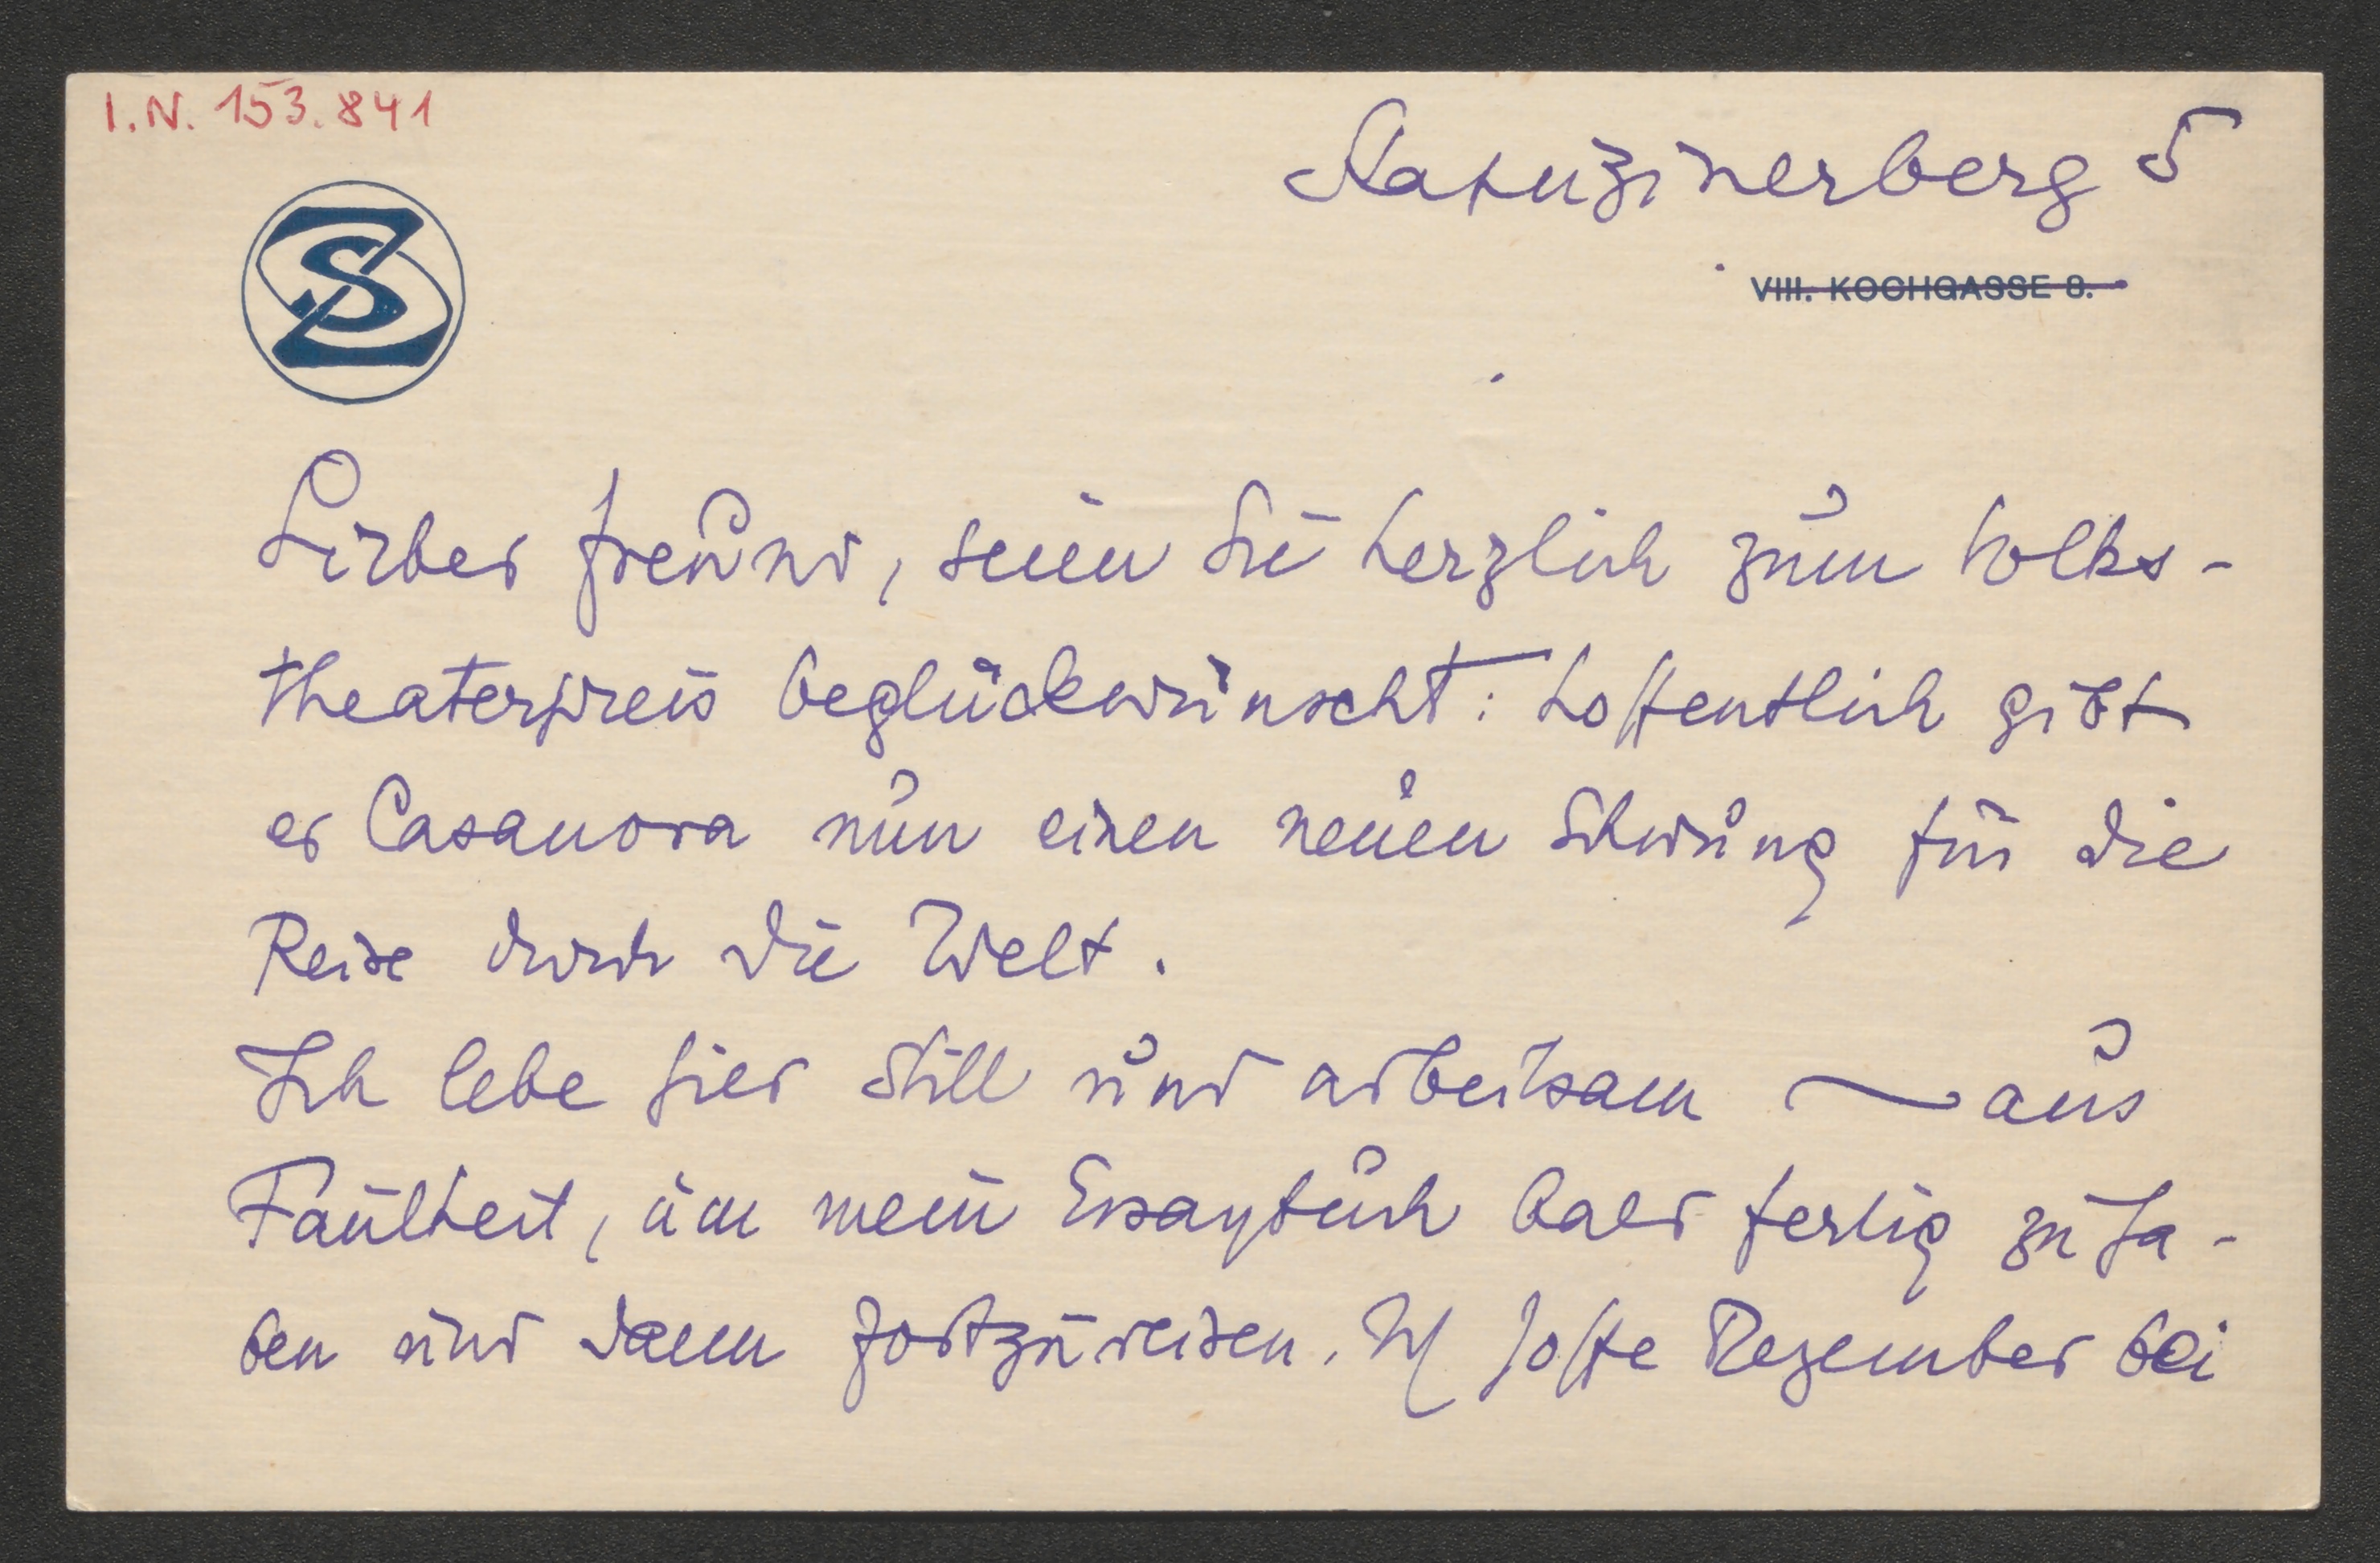 I.N. 153.841
Kapuzinerberg 5
SZ
VIII. KOCHGASSE 8.
Lieber Freund, seien Sie herzlich zum Volks-
theaterpreis beglückwünscht: hoffentlich gibt
er Casanova nun einen neuen Schwung für die
Reise durch die Welt.
Ich lebe hier still und arbeitsam — aus
Faulheit, um mein Essaybuch bald fertig zu ha-
ben und dann fortzureisen. Ich hoffe Dezember bei